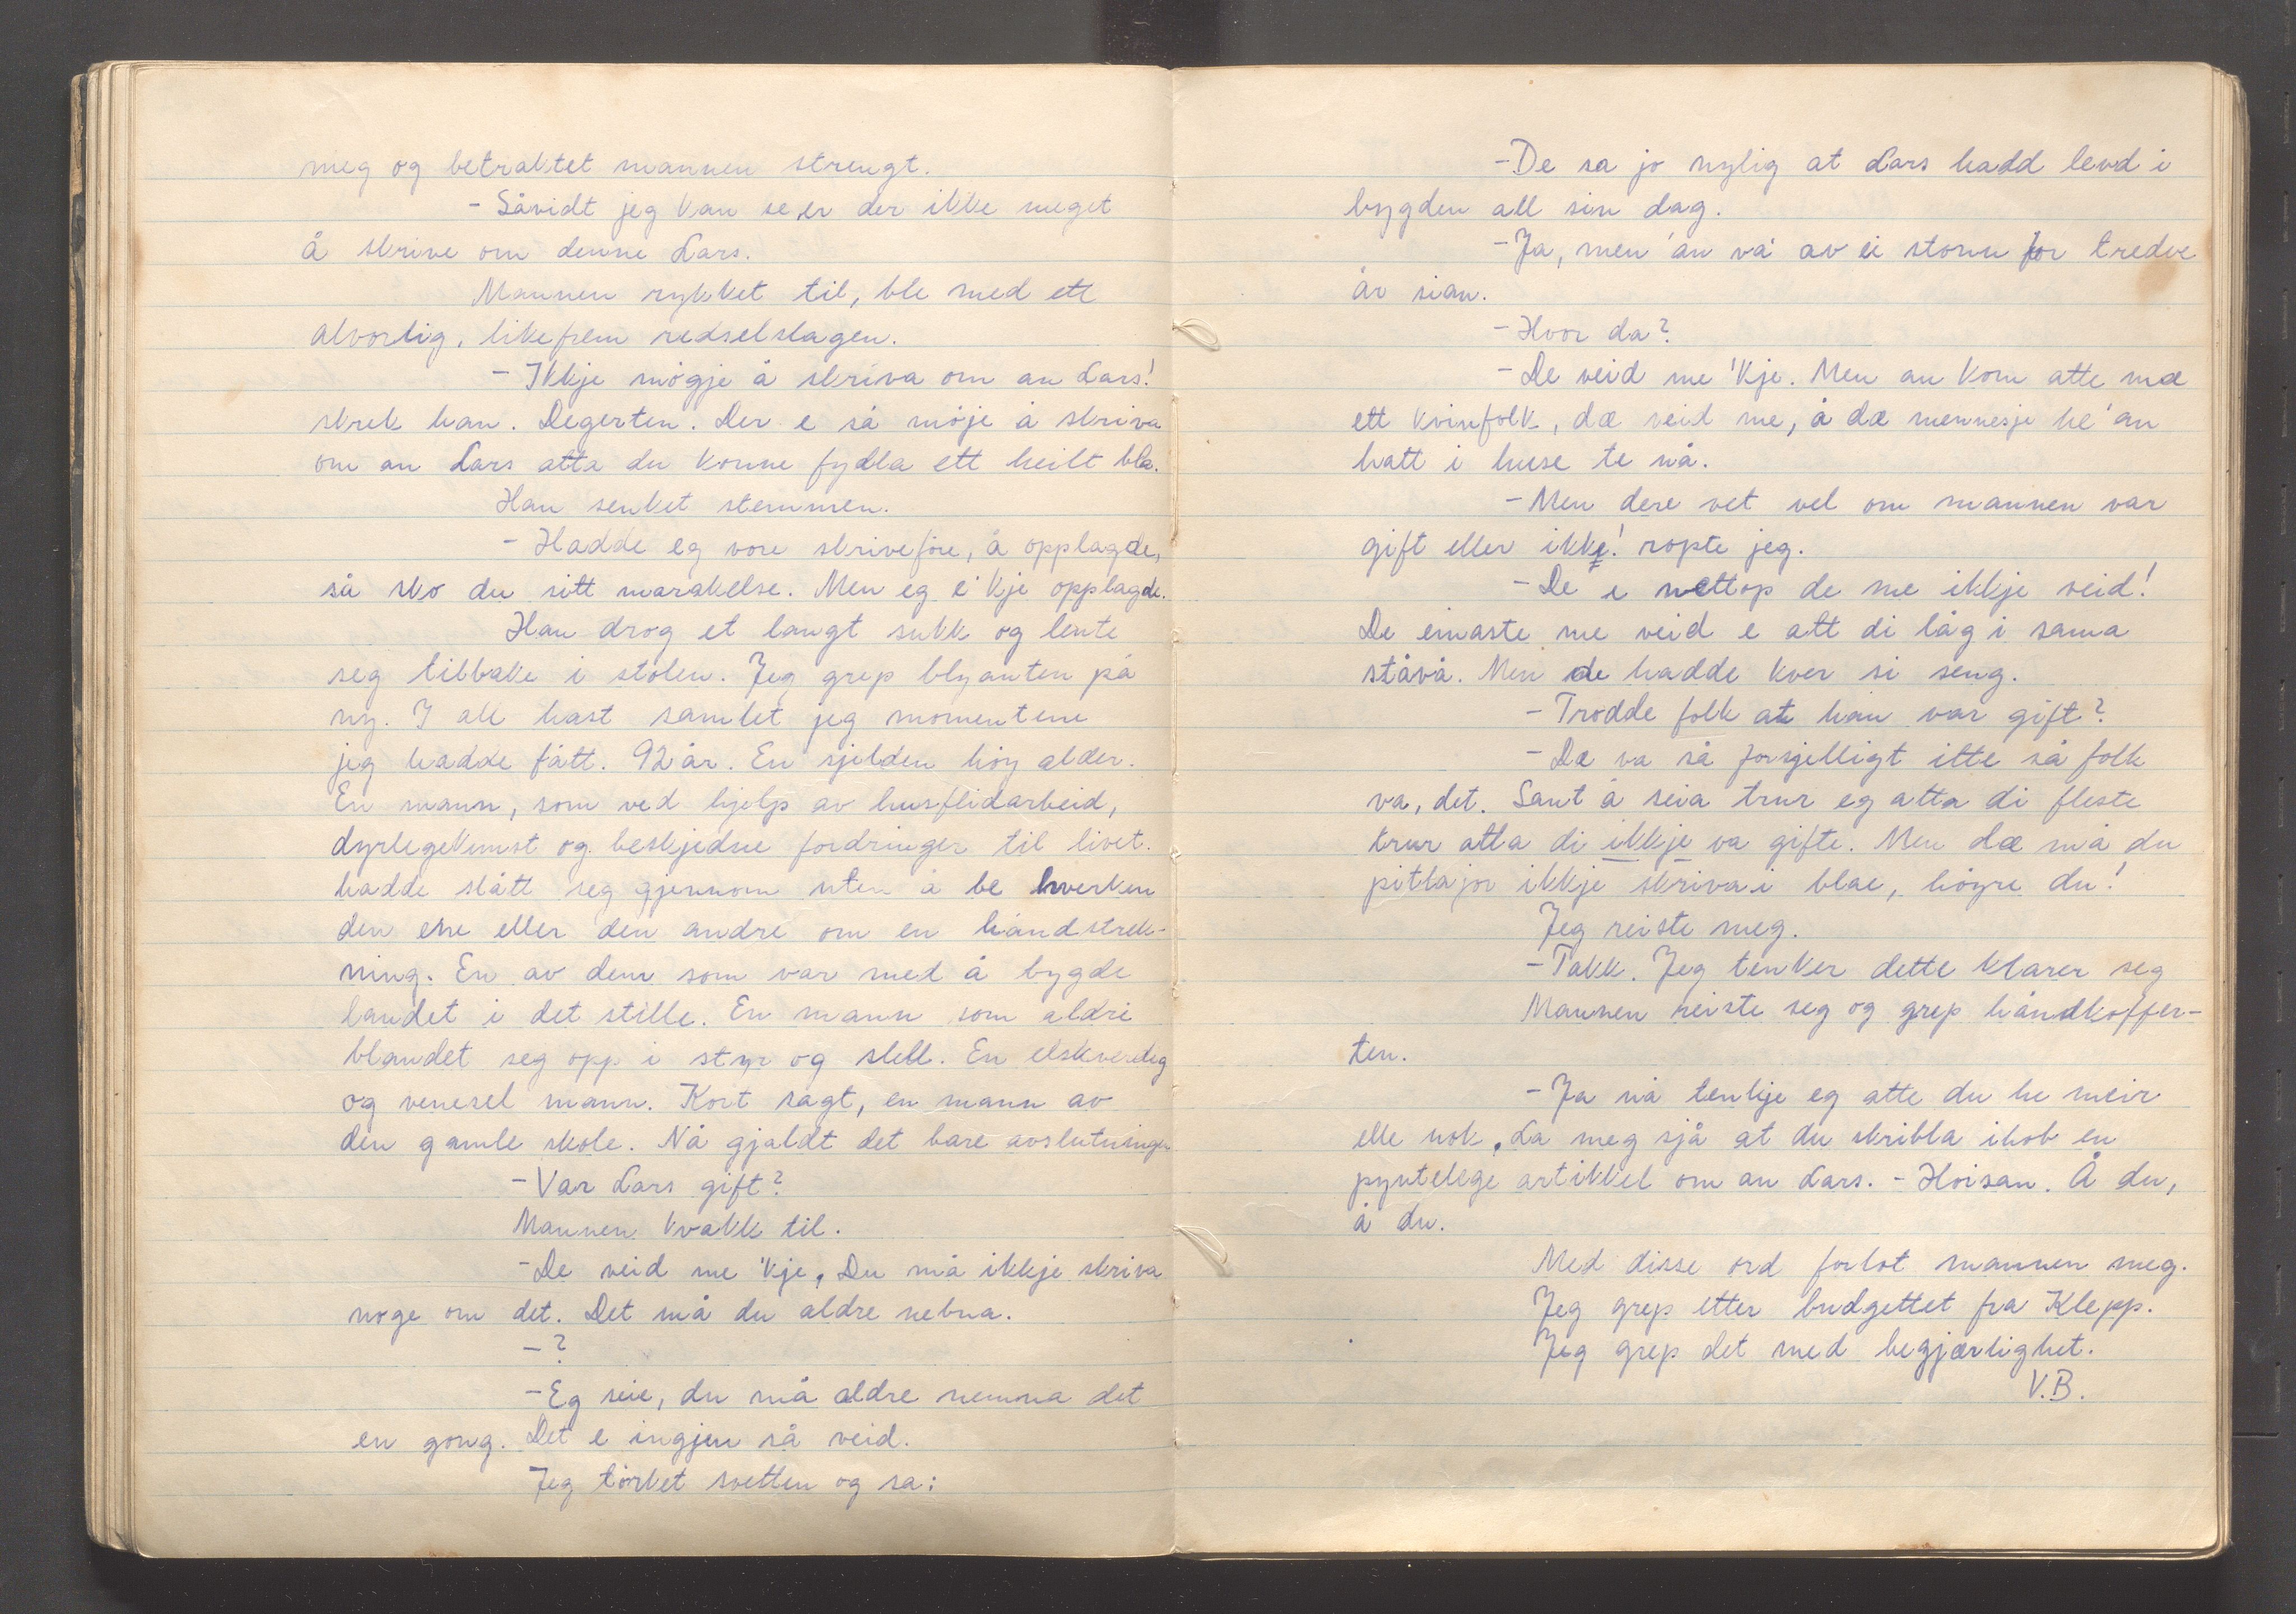 meg og betraktet mannen strengt.
- Såvidt jeg kan se, er der ikke meget
å skrive om denne Lars.
Mannen rykket til, ble med ett
alvorlig, likefrem redselslagen.
- Ikkje mögje å skriva om an Lars!
skrek han. Degerten. Der e så möje å skriva
om an Lars atta du konne fydla ett heilt bla.
Han senket stemmen.
- Hadde eg vore skriveföre, å opplagde,
så sko du sitt marakelse. Men eg e' kje opplagde.
Han drog et langt sukk og lente
seg tilbake i stolen. Jeg grep blyanten på
ny. I all hast samlet jeg momentene
jeg hadde fått. 92 år. En sjelden höy alder.
En mann, som ved hjelp av husflidarbeid,
dyrlegekunst og beskjedne fordringer til livet.
hadde slått seg gjennom uten å be hverken
den ene eller den andre om en håndstrek-
ning. En av dem som var med å bygde
landet i det stille. En mann som aldri
blandet seg opp i styr og stell. En elskverdig
og venesel mann. Kort sagt, en mann av
den gamle skole. Nå gjaldt det bare avslutningen
- Var Lars gift?
Mannen kvakk til.
- De veid me 'kje. Du må ikkje skriva
noge om det. Det må du aldre nebna.
- ?
- Eg seie, du må aldre nemna det
en gong. Det e ingjen så veid.
Jeg törket svetten og sa:
- De sa jo nylig at Lars hadd levd i
bygden all sin dag.
- Ja, men 'an va' av ei stonn for tredve
år sian.
- Hvor da?
- De veid me 'kje. Men an kom atte mæ
ett kvinfolk, dæ veid me, å dæ mennesje he 'an
hatt i huse te nå.
- Men dere vet vel om mannen var
gift eller ikke! ropte jeg.
- De e nettop de me ikkje veid!
De einaste me veid e att di låg i sama
ståvå. Men de hadde kver si seng.
- Trodde folk at han var gift?
- Dæ va så forsjelligt itte så folk
va, det. Sant å seia trur eg atta di fleste
trur atta di ikkje va gifte. Men dæ må du
pittajor ikkje skriva i blae, höyre du!
Jeg reiste meg.
- Takk. Jeg tenker dette klarer seg
Mannen reiste seg og grep håndkoffer-
ten.
- Ja nå tenkje eg atte du he meir
elle nok. La meg sjå at du skribla ihob en
pyntelege artikkel om an Lars. - Hoisan. Å du,
å du.
Med disse ord forlot mannen meg.
Jeg grep etter budgettet fra Klepp.
Jeg grep det med begjærlighet.
V.B.